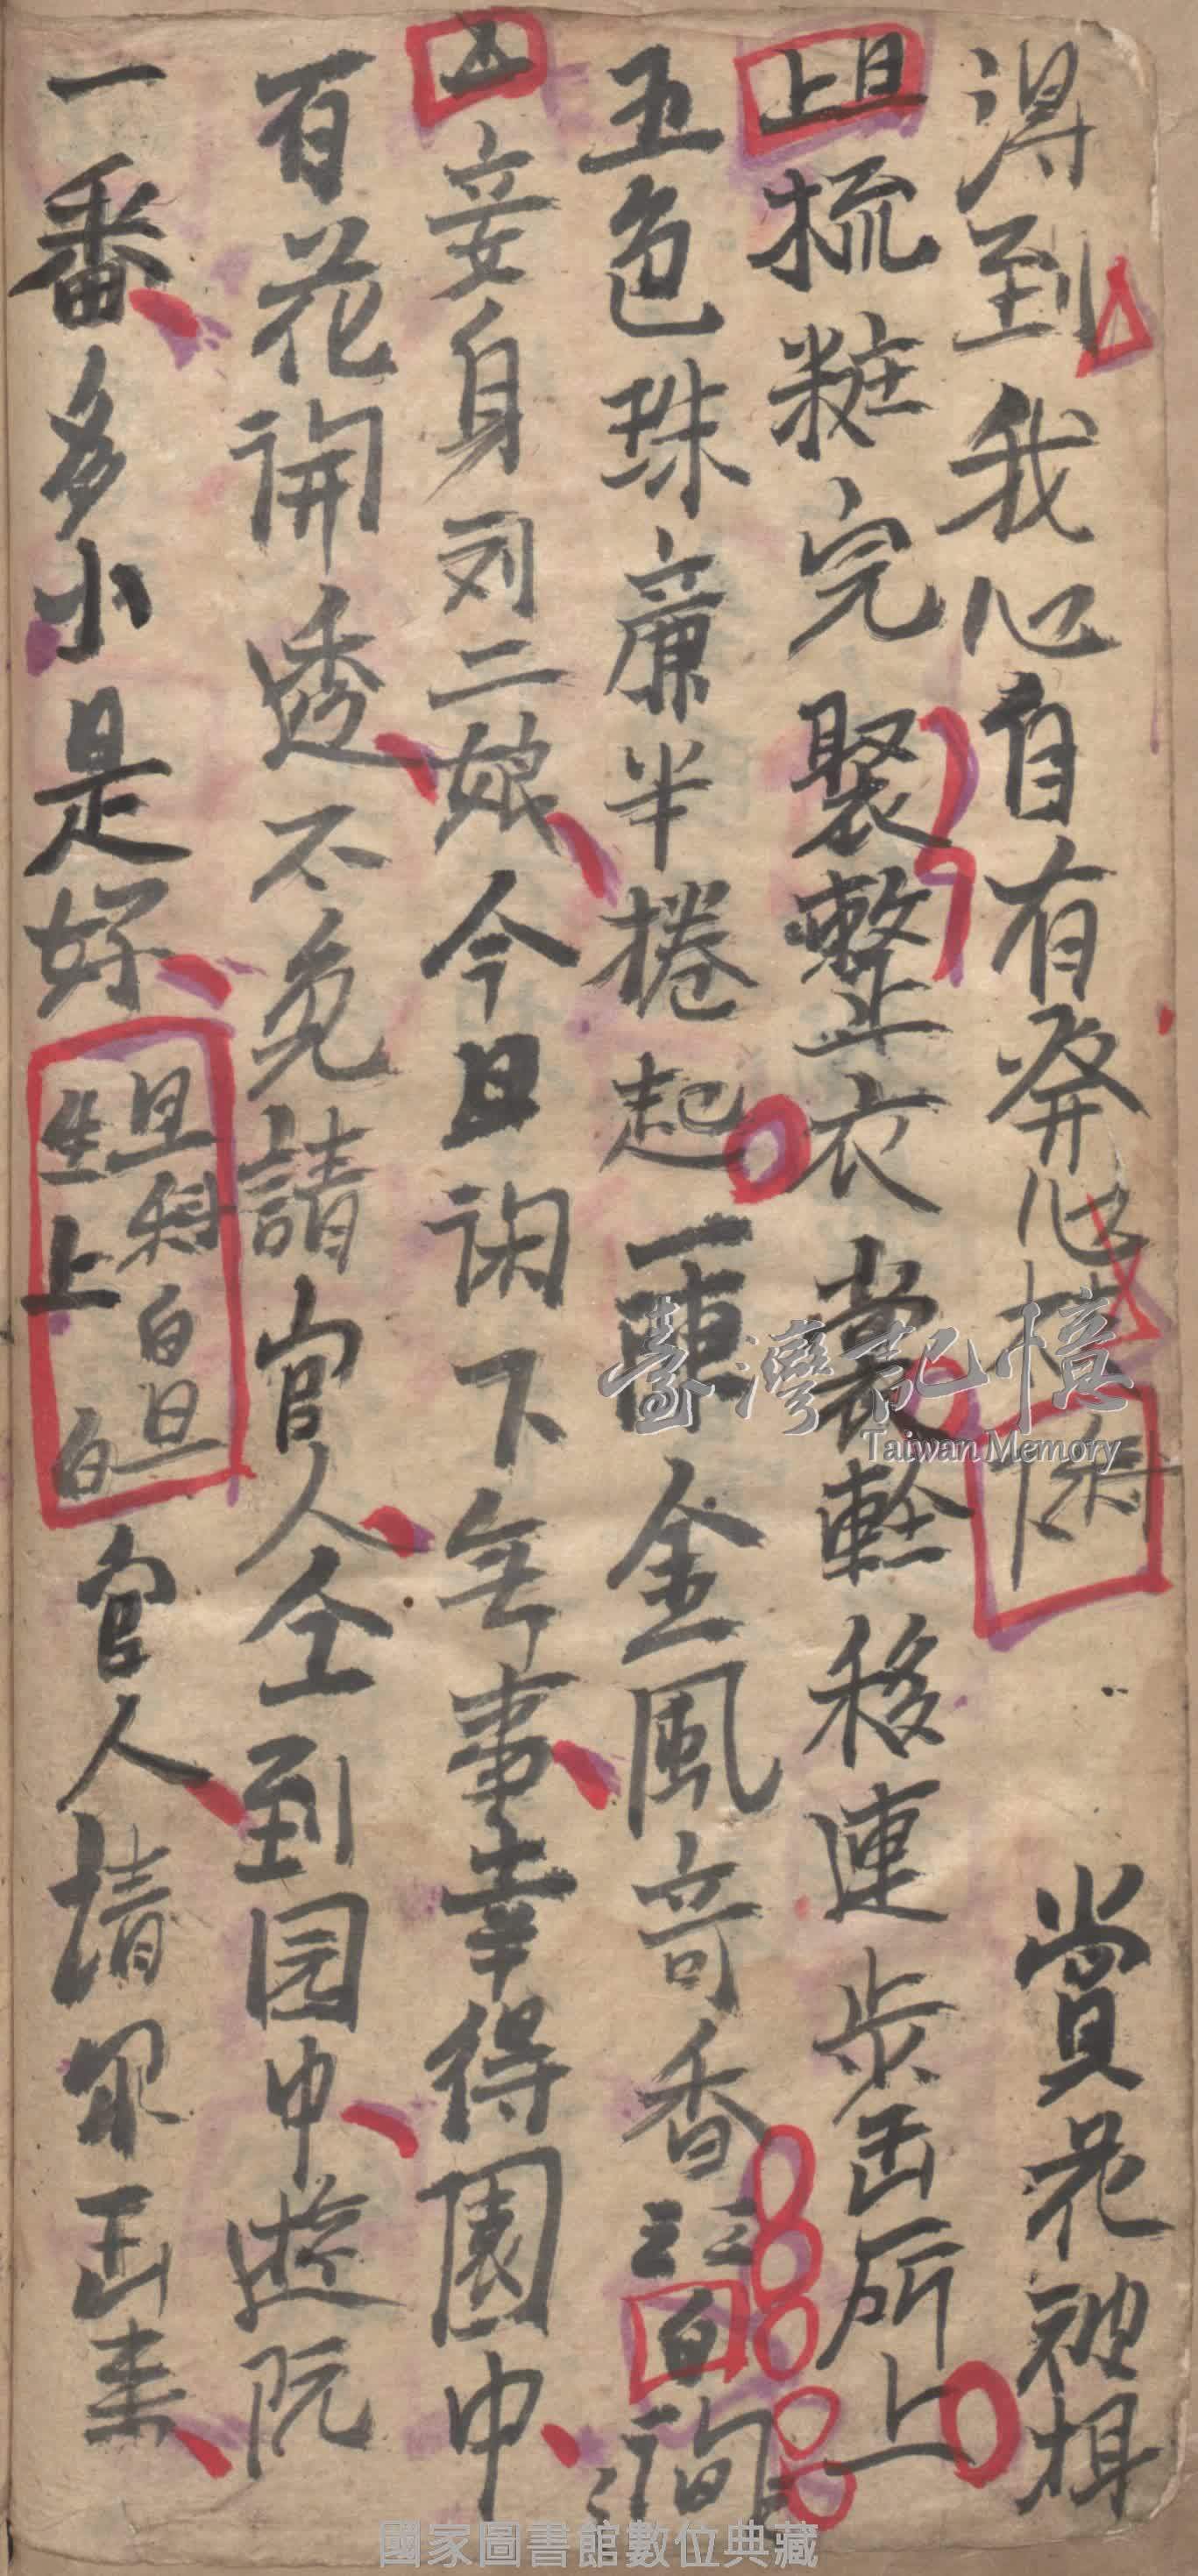 得到我心自有發心機
賞花被掠
旦上
梳粧完聚整衣裳輕移連步出所上
五色珠廉半捲起一陣金風奇香
白
妾身列二娘今日闲下無事幸得園中
百花開透不免請官人仝到园中遊玩
一番多小是好
旦科白旦
生上白
官人請
出來
臺灣記憶
Taiwan Memory
國家圖書館數位典藏